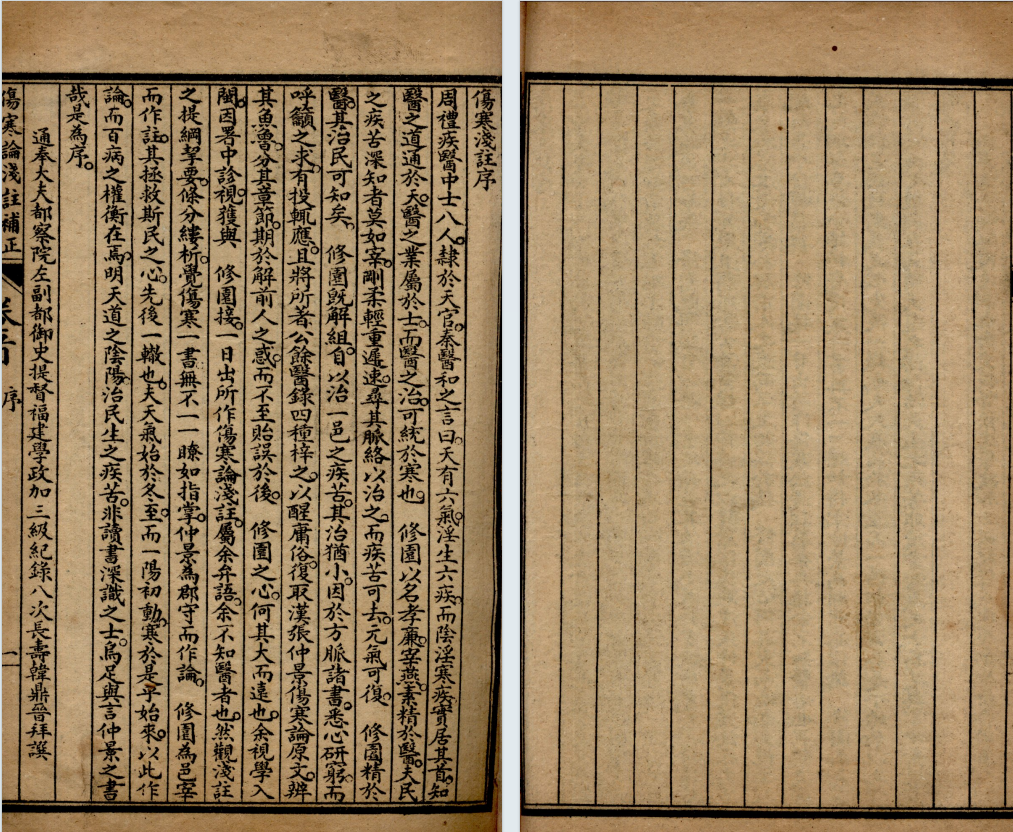 傷寒淺註序
周禮疾醫中士八人隸於天官秦醫和之言曰天有六氣淫生六疾而陰淫寒疾實居其首知
醫之道通於天醫之業屬於士而醫之治可統於寒也　修園以名孝廉宰燕素精於醫夫民
之疾苦深知者莫如宰剛柔輕重遲速尋其脈絡以治之而疾苦可去元氣可復　修園精於
醫其治民可知矣　修園既解組自以治一邑之疾苦其治猶小因於方脈諸書悉心研窮而
呼籲之求有投輒應且將所著公餘醫錄四種梓之以醒庸俗復取漢張仲景傷寒論原文辨
其魚魯分其章節期於解前人之惑而不至貽誤於後　修園之心何其大而遠也余視學入
閩因署中診視獲與　修園接一日出所作傷寒論淺註屬余弁語余不知醫者也然觀淺註
之提綱挈要條分縷析覺傷寒一書無不一一瞭如指掌仲景為郡守而作論　修園為邑宰
而作註其拯救斯民之心先後一轍也夫天氣始於冬至而一陽初動寒於是乎始來以此作
論而百病之權衡在焉明天道之陰陽治民生之疾苦非讀書深識之士烏足與言仲景之書
哉是為序
通奉大夫都察院左副都御史提督福建學政加三級紀錄八次長壽韓鼎晉拜譔
傷寒論淺註補正　序　一